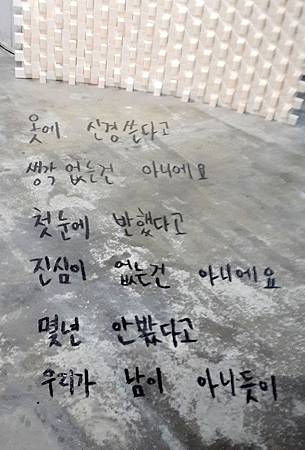 옷에 신경쓴다고
생각 없는건 아니에요
첫눈에 반했다고
진심이 없는건 아니에요
몇년 안봤다고
우리가 남이 아니듯이